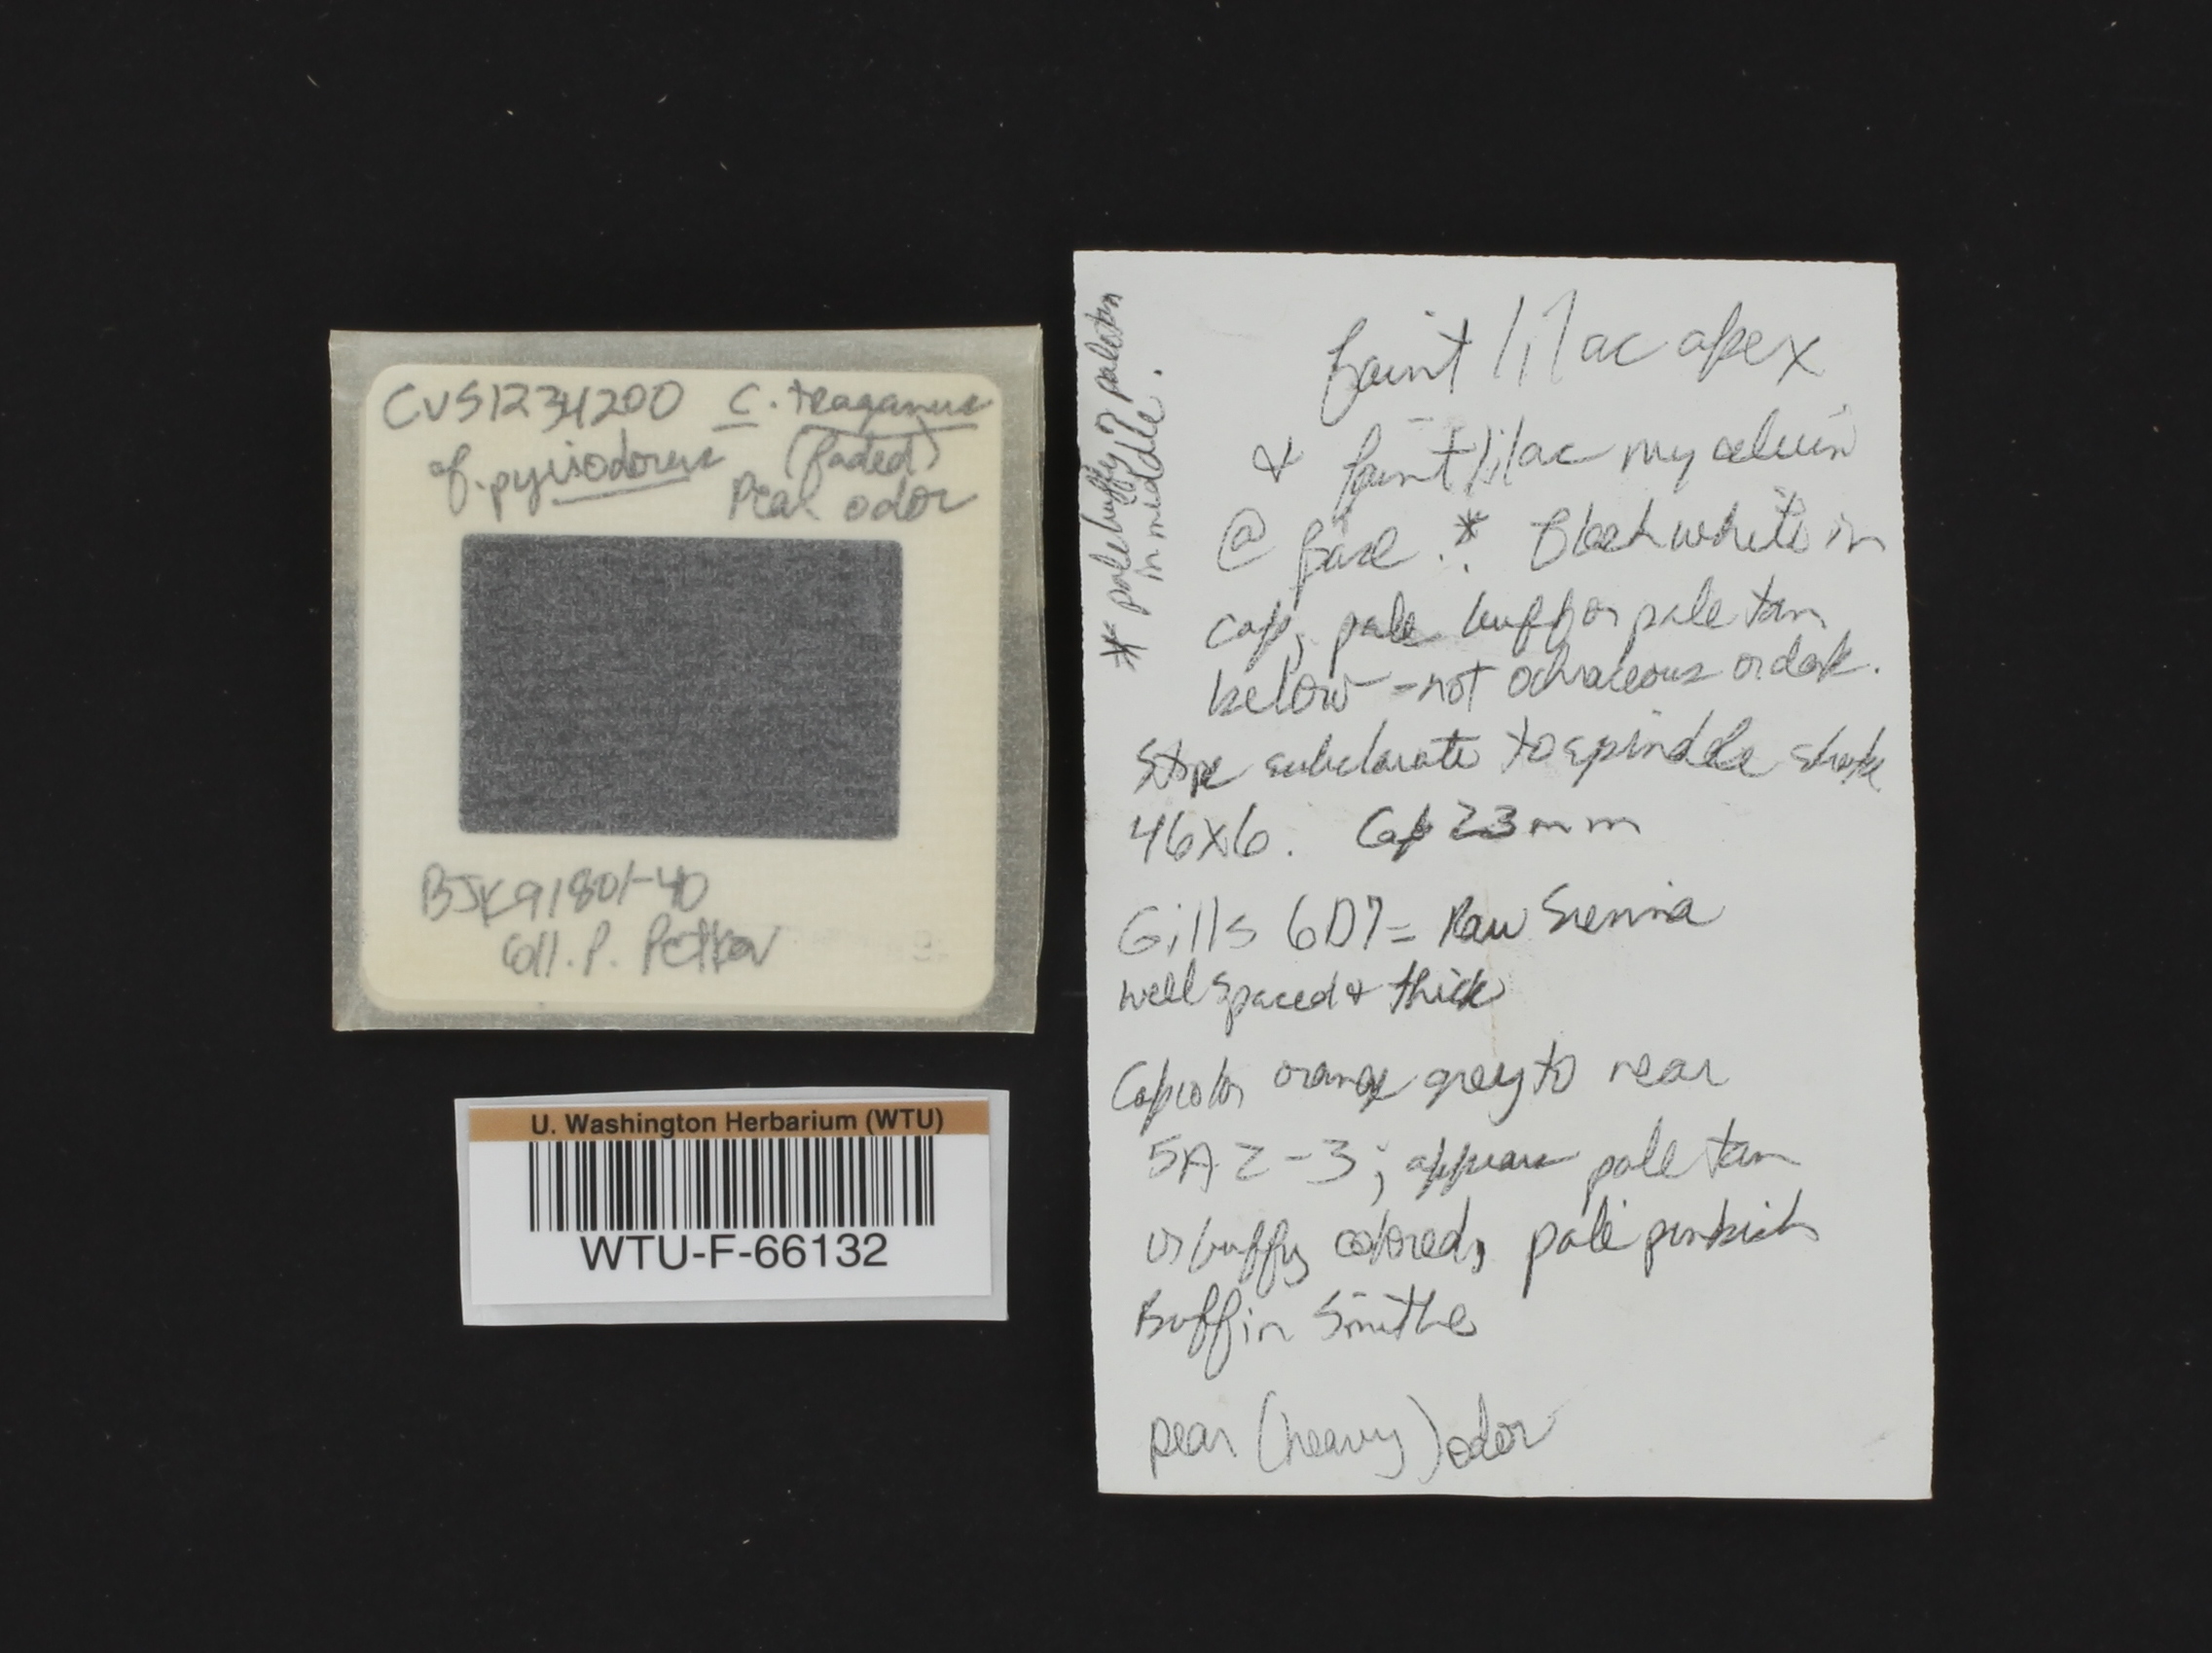 CVS1234200 C. traganus
of. pyriodorus (faded)
Pear odor
BJK91801-40
Coll. P. Petkov
U. Washington Herbarium (WTU)
WTU-F-66132
* pale buffy pale tan
in middle.
faint lilac apex
& faint lilac mycelium
@ base.* Flesh white in
cap, pale buff or pale tan
below - not ochraceous or dark.
Stipe subclavate to spindle shape
46x6. Cap 23mm
Gills 6D7 = Raw Sienna
well spaced & thick
Cap color orange grey to near
5A2-3; appears pale tan
or buffy colored, pale pinkish
Buff in Smithe
pear (heavy) odor